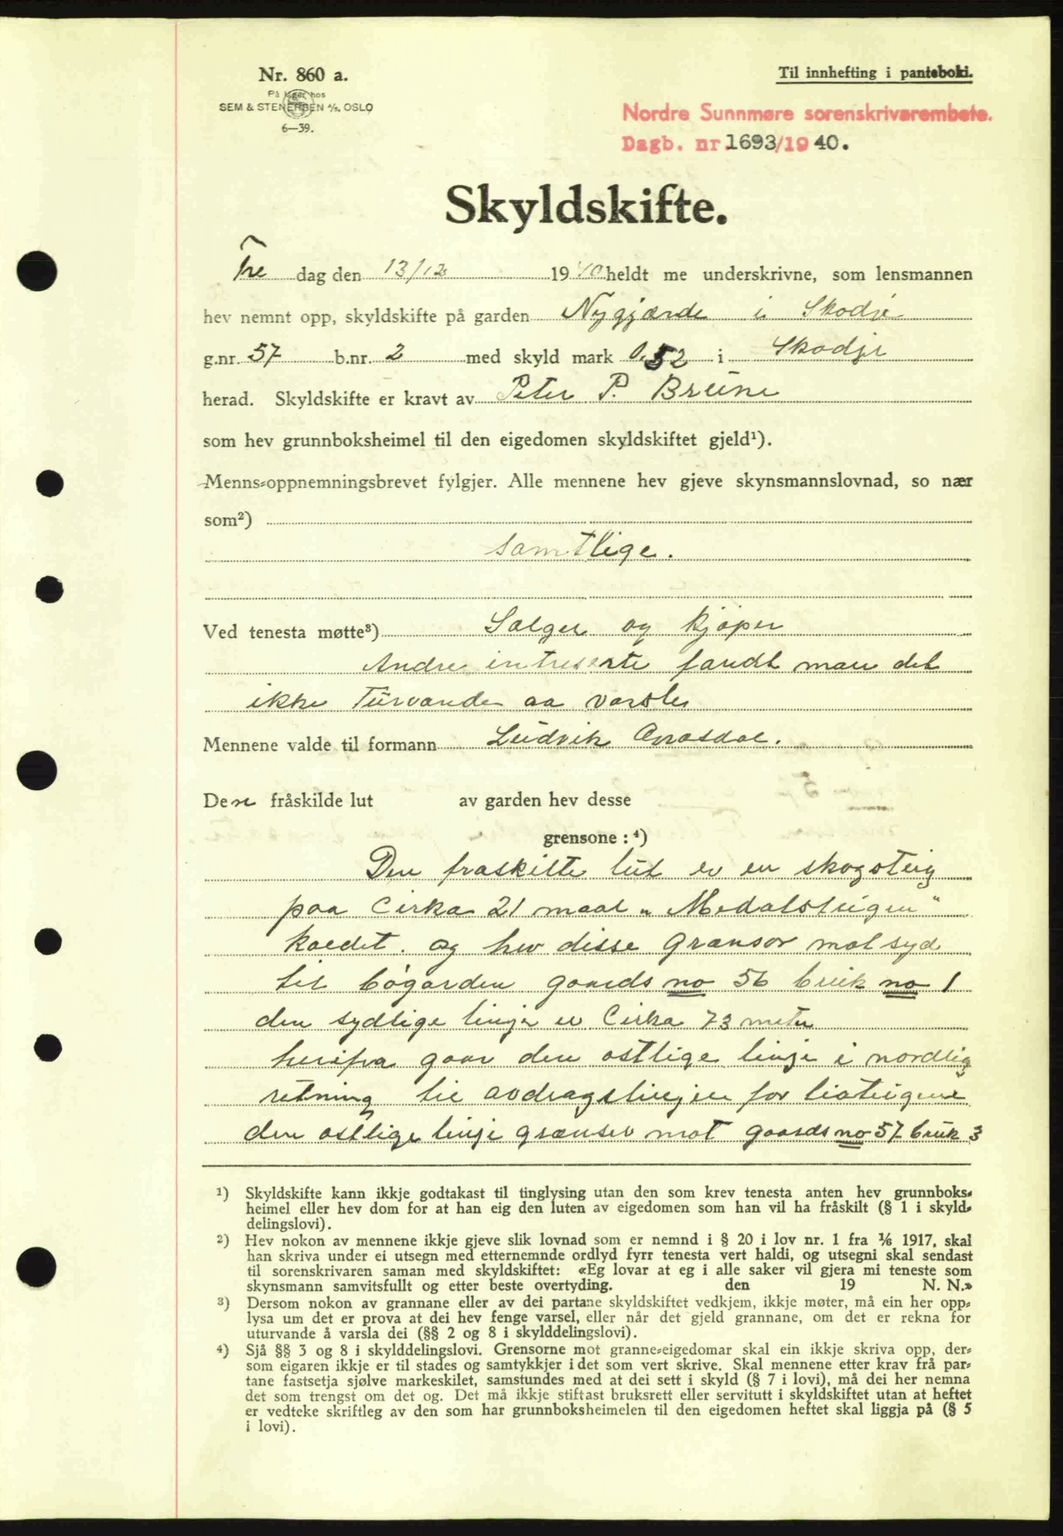 Nr. 860 a.
På lager hos
SEM & STENERSEN A/S. OSLO
6—39.
Til innhefting i panteboki.
Nordre Sunnmøre sorenskrivarembete.
Dagb. nr 1693/1940.
Skyldskifte.
Fre dag den 13/12 1940 heldt me underskrivne, som lensmannen
hev nemnt opp, skyldskifte på garden Nygjærde i Skodje
g.nr. 57 b.nr. 2 med skyld mark 0,52 i Skodje
herad. Skyldskifte er kravt av Peter P. Breine
som hev grunnboksheimel til den eigedomen skyldskiftet gjeld¹).
Menns-oppnemningsbrevet fylgjer. Alle mennene hev gjeve skynsmannslovnad, so nær
som²)
samtlige.
Ved tenesta møtte³) Sælger og kjøper
Andre intreserte fandt man det
ikke turvande aa varsle
Mennene valde til formann Ludvik
Den fråskilde lut av garden hev desse
grensone :⁴)
Den fraskilte lut er en skogsteig
paa Cirka 21 maal „Medalsteigen“
kaldet. og hev disse Grænsor mot syd
til bøgarden gaards no 56 bruk no 1
den sydlige linje er Cirka 73 meter
herifra gaar den østlige linje i nordlig
retning til avdragslinjen for
den østlige linje grænser mot gaards no 57 bruk 3
¹) Skyldskifte kann ikkje godtakast til tinglysing utan den som krev tenesta anten hev grunnboks-
heimel eller hev dom for at han eig den luten av eigedomen som han vil ha fråskilt (§ 1 i skyld-
delingslovi).
²) Hev nokon av mennene ikkje gjeve slik lovnad som er nemnd i § 20 i lov nr. 1 fra ⅙ 1917, skal
han skriva under ei utsegn med etternemnde ordlyd fyrr tenesta vert haldi, og utsegni skal sendast
til sorenskrivaren saman med skyldskiftet: «Eg lovar at eg i alle saker vil gjera mi teneste som
skynsmann samvitsfullt og etter beste overtyding. den 19 N. N.»
³) Dersom nokon av grannane eller av dei partane skyldskiftet vedkjem, ikkje møter, må ein her opp-
lysa um det er prova at dei hev fenge varsel, eller når det gjeld grannane, om det er rekna for
uturvande å varsla dei (§§ 2 og 8 i skylddelingslovi).
⁴) Sjå §§ 3 og 8 i skylddelingslovi. Grensorne mot granne-eigedomar skal ein ikkje skriva opp, der-
som eigaren ikkje er til stades og samtykkjer i det som vert skrive. Skal mennene etter krav frå par-
tane fastsetja sjølve markeskilet, samstundes med at dei sett i skyld (§ 7 i lovi), må dei her nemna
det som trengst om det og. Det må ikkje stiftast bruksrett eller servitutt i skyldskiftet utan at heftet
er vedteke skriftleg av den som har grunnboksheimelen til den eigedomen heftet skal liggja på (§ 5
i lovi).